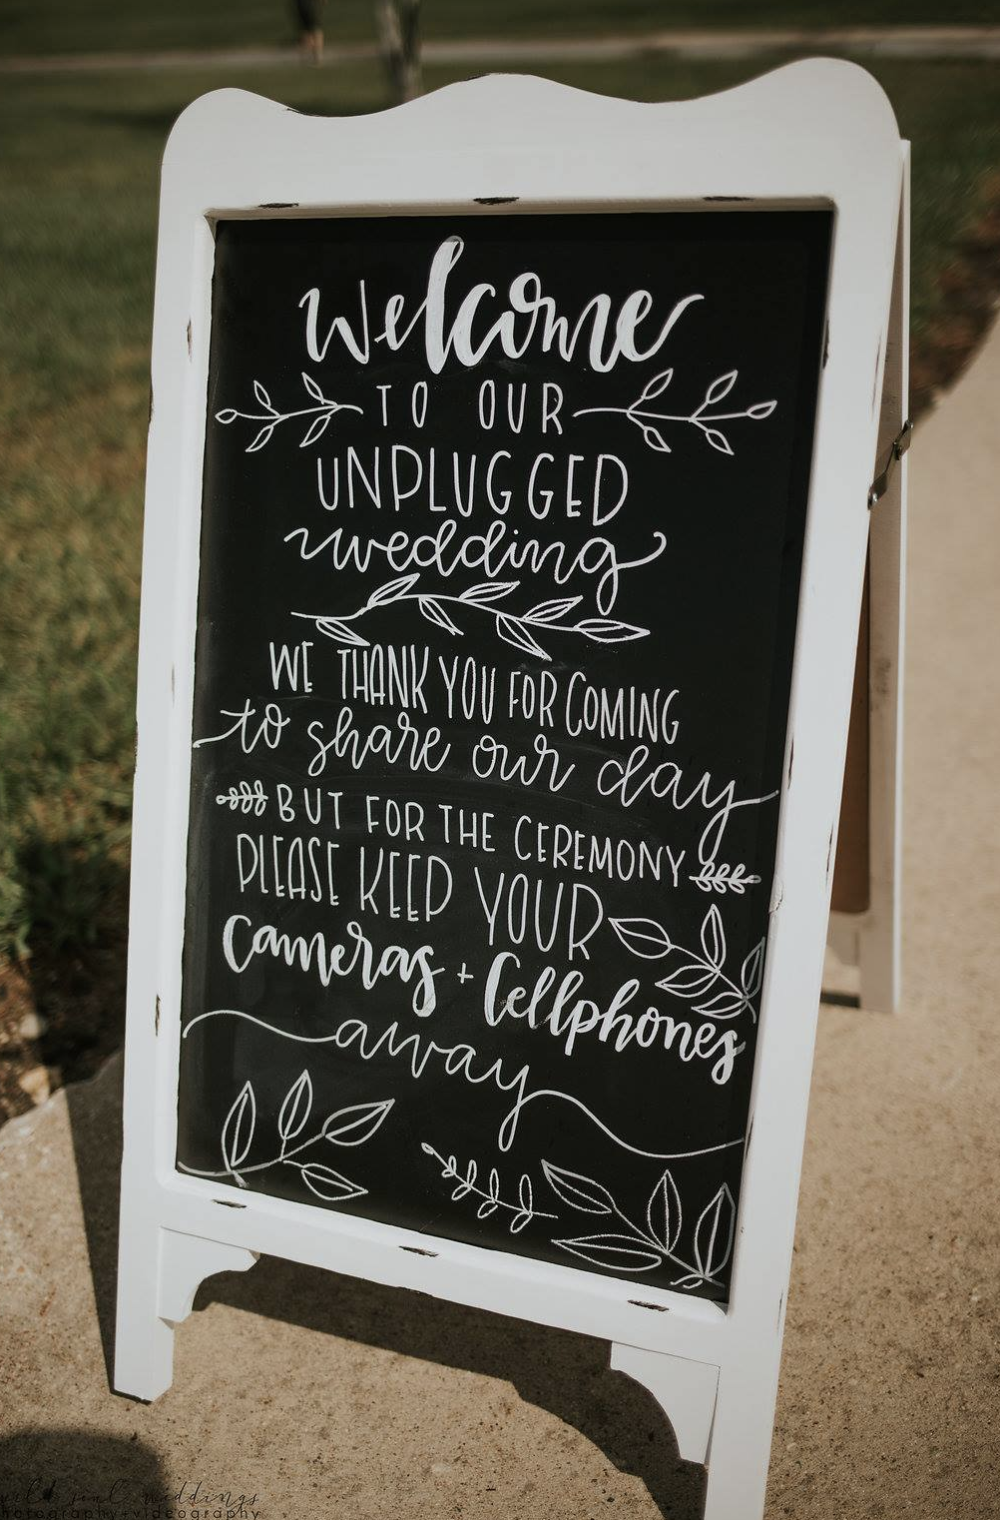 Welcome
TO OUR
UNPLUGGED
wedding
WE THANK YOU FOR COMING
to share our day
BUT FOR THE CEREMONY
PLEASE KEEP YOUR
Cameras + Cellphones
away
wild soul weddings
photography+videography